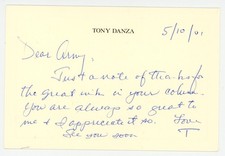 TONY DANZA
5/10/01
Dear Army,
Just a note of thanks for
the great mention in your column.
You are always so great to
me & I appreciate it so. Love
See you soon T